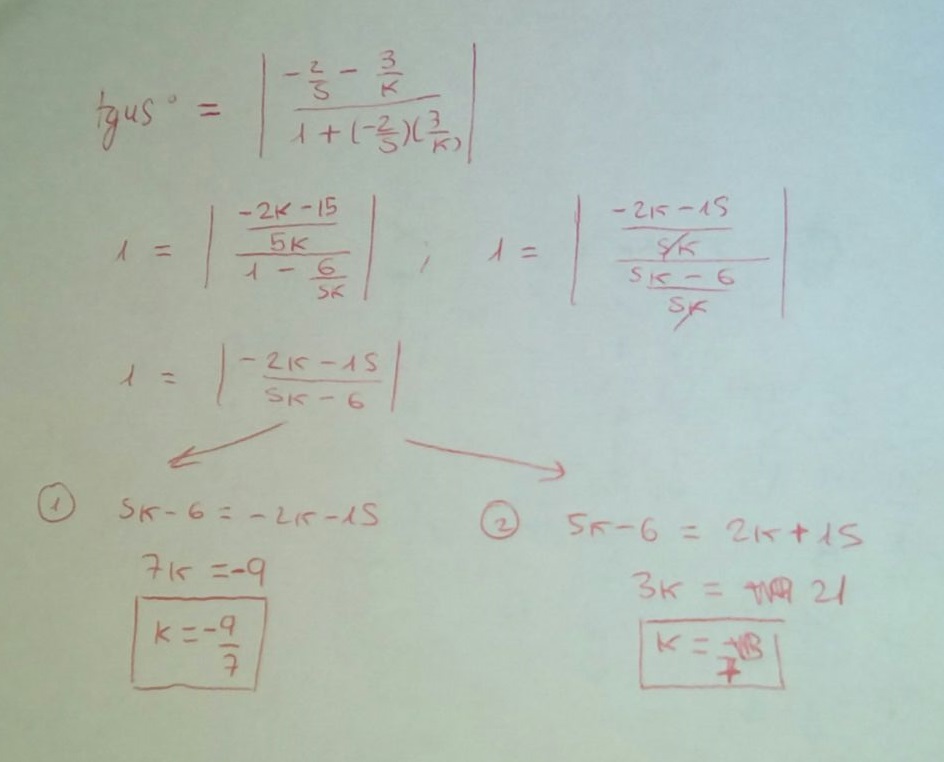 tg45° = | (-2/5 - 3/K) / (1 + (-2/5)(3/K)) |
1 = | ((-2K-15)/5K) / (1 - 6/5K) | ; 1 = | ((-2K-15)/5K) / ((5K-6)/5K) |
1 = | (-2K-15)/(5K-6) |
① 5K-6 = -2K-15
② 5K-6 = 2K+15
7K = -9
3K = 21
K = -9/7
K = 7